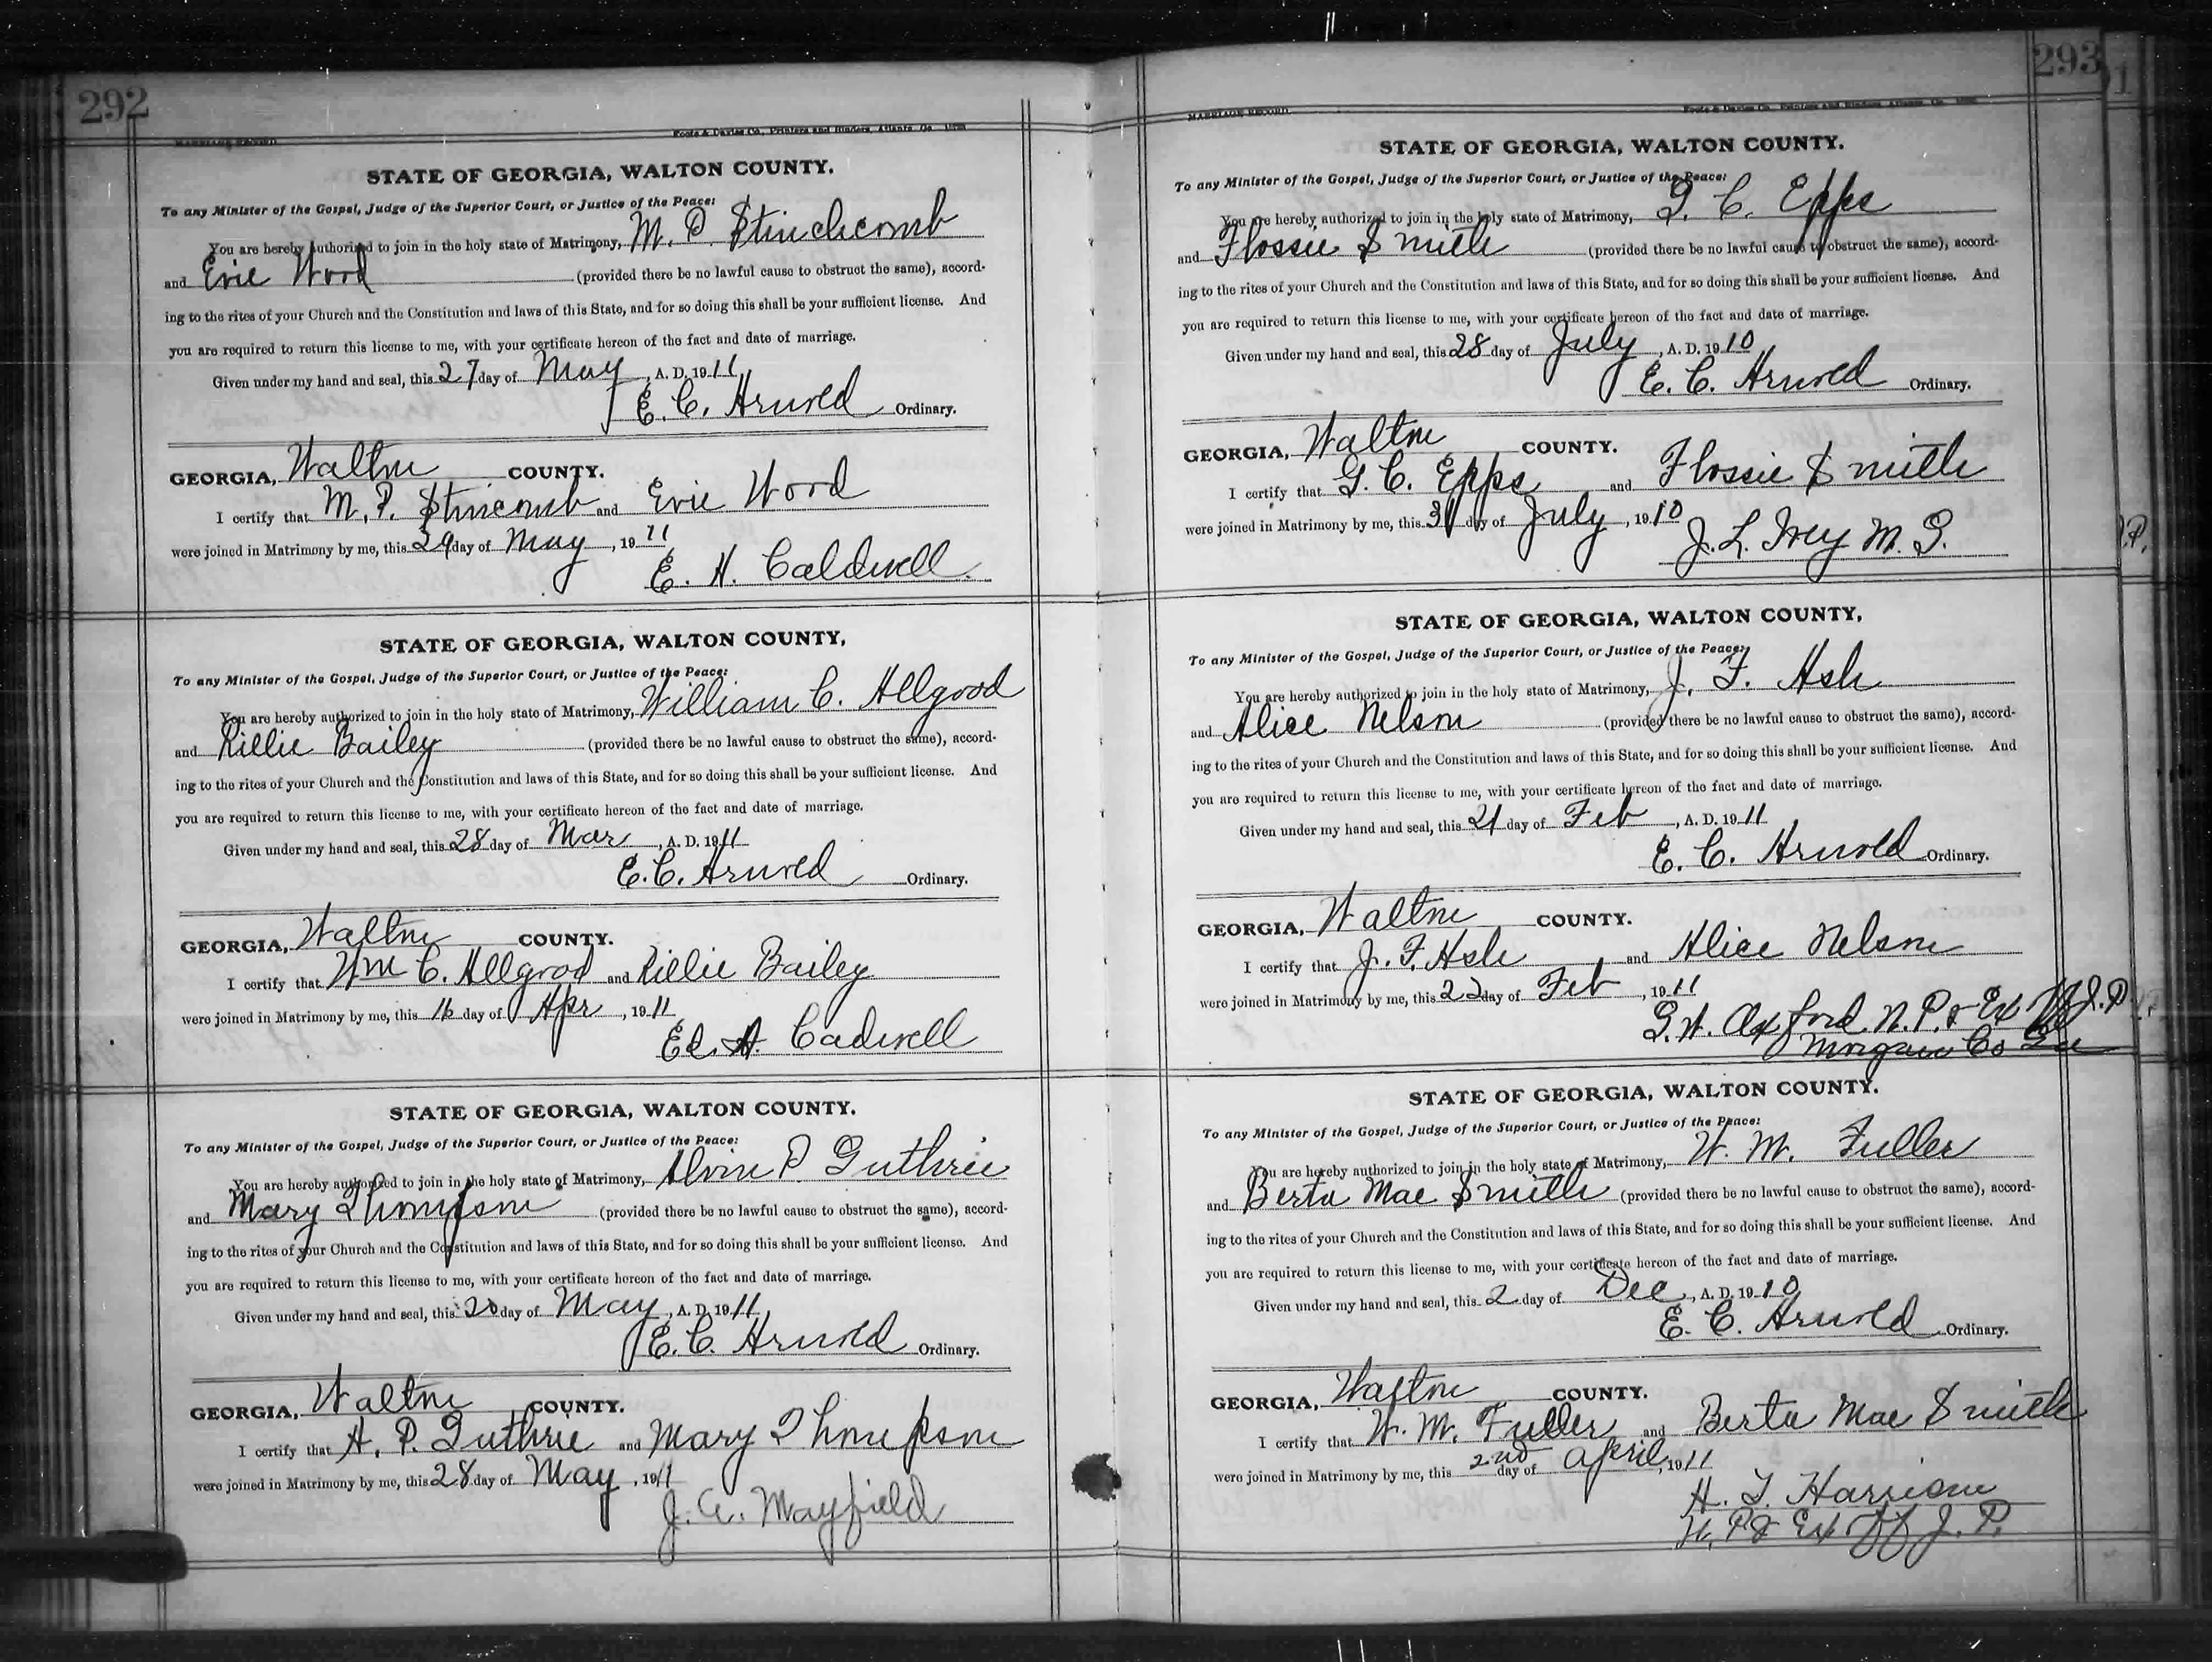 292
MARRIAGE RECORD
Foote & Davies Co., Printers and Binders, Atlanta, Ga.
STATE OF GEORGIA, WALTON COUNTY.
To any Minister of the Gospel, Judge of the Superior Court, or Justice of the Peace:
You are hereby authorized to join in the holy state of Matrimony, M. P. Stinchcomb
and Evie Wood (provided there be no lawful cause to obstruct the same), accord-
ing to the rites of your Church and the Constitution and laws of this State, and for so doing this shall be your sufficient license. And
you are required to return this license to me, with your certificate hereon of the fact and date of marriage.
Given under my hand and seal, this 27 day of May, A. D. 1911
E. C. Arnold Ordinary.
GEORGIA, Walton COUNTY.
I certify that M. P. Stincomb and Evie Wood
were joined in Matrimony by me, this 29 day of May, 1911
E. H. Caldwell
STATE OF GEORGIA, WALTON COUNTY,
To any Minister of the Gospel, Judge of the Superior Court, or Justice of the Peace:
You are hereby authorized to join in the holy state of Matrimony, William C. Allgood
and Lillie Bailey (provided there be no lawful cause to obstruct the same), accord-
ing to the rites of your Church and the Constitution and laws of this State, and for so doing this shall be your sufficient license. And
you are required to return this license to me, with your certificate hereon of the fact and date of marriage.
Given under my hand and seal, this 28 day of Mar, A. D. 1911
E. C. Arnold Ordinary.
GEORGIA, Walton COUNTY.
I certify that Wm C. Allgood and Lillie Bailey
were joined in Matrimony by me, this 16 day of Apr, 1911
Ed. H. Cadwell
STATE OF GEORGIA, WALTON COUNTY.
To any Minister of the Gospel, Judge of the Superior Court, or Justice of the Peace:
You are hereby authorized to join in the holy state of Matrimony, Alvin P. Guthrie
and Mary Thompson (provided there be no lawful cause to obstruct the same), accord-
ing to the rites of your Church and the Constitution and laws of this State, and for so doing this shall be your sufficient license. And
you are required to return this license to me, with your certificate hereon of the fact and date of marriage.
Given under my hand and seal, this 20 day of May, A. D. 1911
E. C. Arnold Ordinary.
GEORGIA, Walton COUNTY.
I certify that A. P. Guthrie and Mary Thompson
were joined in Matrimony by me, this 28 day of May, 1911
J. A. Mayfield
293
MARRIAGE RECORD
Foote & Davies Co., Printers and Binders, Atlanta, Ga.
STATE OF GEORGIA, WALTON COUNTY.
To any Minister of the Gospel, Judge of the Superior Court, or Justice of the Peace:
You are hereby authorized to join in the holy state of Matrimony, G. C. Epps
and Flossie Smith (provided there be no lawful cause to obstruct the same), accord-
ing to the rites of your Church and the Constitution and laws of this State, and for so doing this shall be your sufficient license. And
you are required to return this license to me, with your certificate hereon of the fact and date of marriage.
Given under my hand and seal, this 28 day of July, A. D. 1910
E. C. Arnold Ordinary.
GEORGIA, Walton COUNTY.
I certify that G. C. Epps and Flossie Smith
were joined in Matrimony by me, this 31 day of July, 1910
J. L. Ivey M. G.
STATE OF GEORGIA, WALTON COUNTY,
To any Minister of the Gospel, Judge of the Superior Court, or Justice of the Peace:
You are hereby authorized to join in the holy state of Matrimony, J. F. Ash
and Alice Nelson (provided there be no lawful cause to obstruct the same), accord-
ing to the rites of your Church and the Constitution and laws of this State, and for so doing this shall be your sufficient license. And
you are required to return this license to me, with your certificate hereon of the fact and date of marriage.
Given under my hand and seal, this 21 day of Feb, A. D. 1911
E. C. Arnold Ordinary.
GEORGIA, Walton COUNTY.
I certify that J. F. Ash and Alice Nelson
were joined in Matrimony by me, this 22 day of Feb, 1911
G. W. Oxford N. P. & Ex Off J. P
Morgan Co Ga
STATE OF GEORGIA, WALTON COUNTY.
To any Minister of the Gospel, Judge of the Superior Court, or Justice of the Peace:
You are hereby authorized to join in the holy state of Matrimony, W. M. Fuller
and Berta Mae Smith (provided there be no lawful cause to obstruct the same), accord-
ing to the rites of your Church and the Constitution and laws of this State, and for so doing this shall be your sufficient license. And
you are required to return this license to me, with your certificate hereon of the fact and date of marriage.
Given under my hand and seal, this 2 day of Dec, A. D. 1910
E. C. Arnold Ordinary.
GEORGIA, Walton COUNTY.
I certify that W. M. Fuller and Berta Mae Smith
were joined in Matrimony by me, this 2nd day of April, 1911
H. T. Harrison
N. P & Ex Off J. P.